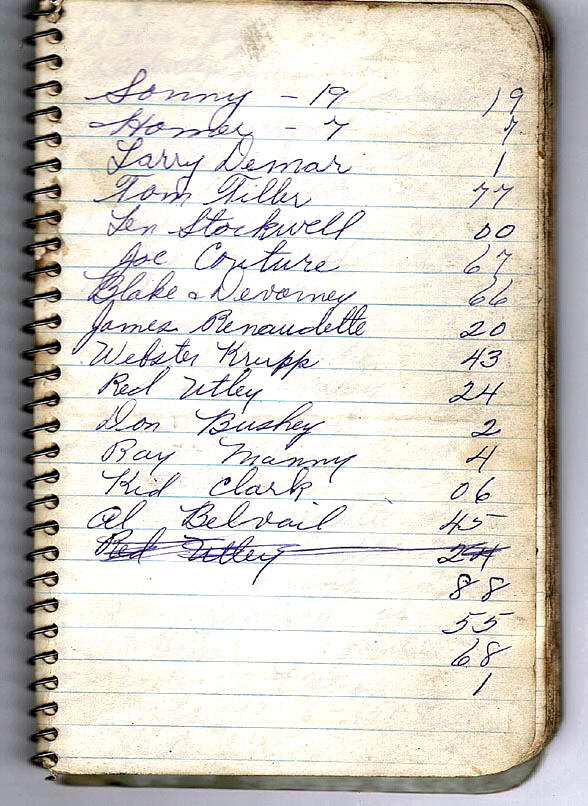 Sonny - 19 19
Homer - 7 7
Larry Demar 1
Tom Tiller 77
Len Stockwell 00
Joe Couture 67
Blake & Devorney 66
James Renaudette 20
Webster Krupp 43
Red Utley 24
Don Bushey 2
Ray Manny 4
Kid Clark 06
Al Belvail 45
Red Utley 24
88
55
68
1